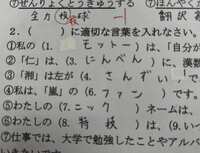 ⑦ぜんりょくとうきゅうする ⑦ほんやく
全力(投)球 -1 翻訳
2.( )に適切な言葉を入れなさい。
①私の(1. モットー )は、「自分が
②「仁」は、(3. にんべん )に、漢数
③「湘」は左が(4. さんずい )で
④私は、嵐の(6. ファン )です
⑤わたしの(7. ニック )ネームは、
⑥わたしの(8. 特技 )は、(9. い
⑦仕事では、大学で勉強したことやアル